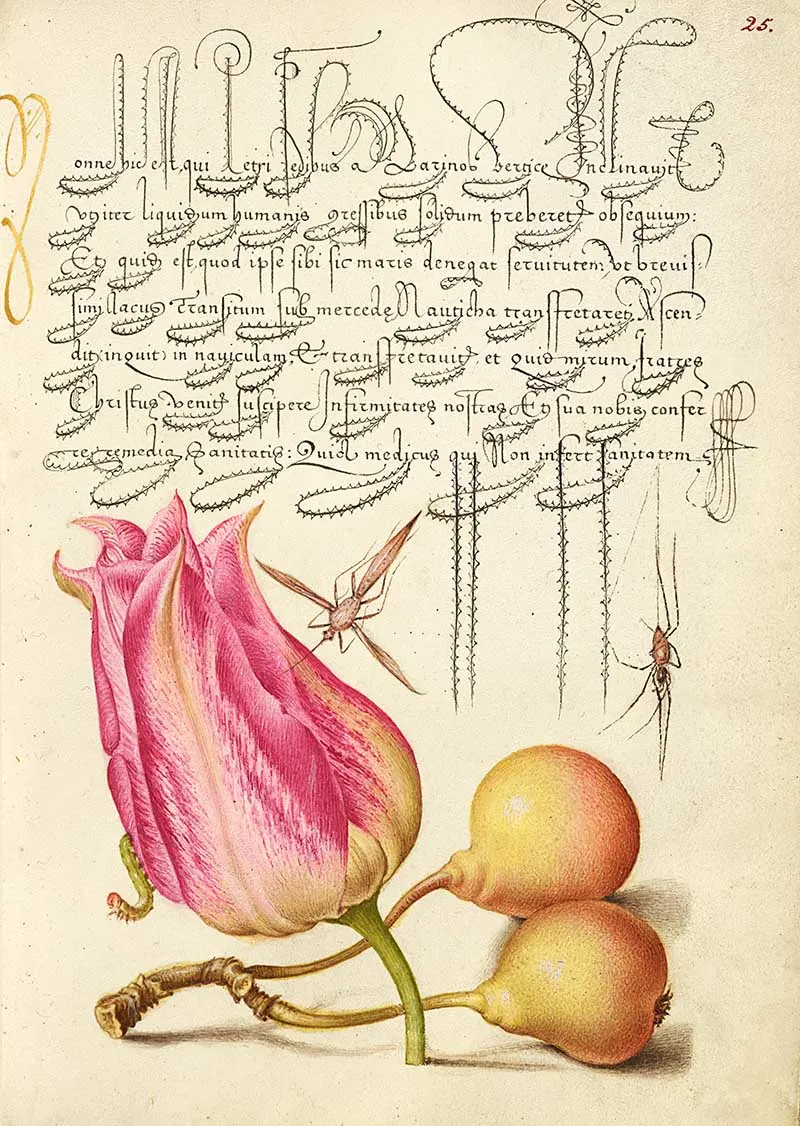 25.
onne hic est, qui Petri pedibus vertice Inclinavit
vt iter liquidum humanis gressibus solidum preberet obsequium:
Et quid est, quod ipse sibi sic maris denegat seruitutem, vt breuis-
simi lacus Transitum sub mercede Nauticha transfretaret, Ascen-
dit, inquit, in nauiculam, & transfretauit, et Quid mirum, fratres
Christus venit suscipere Infirmitates nostras Et sua nobis confer
re remedia Sanitatis: Quid medicus qui Non infert sanitatem